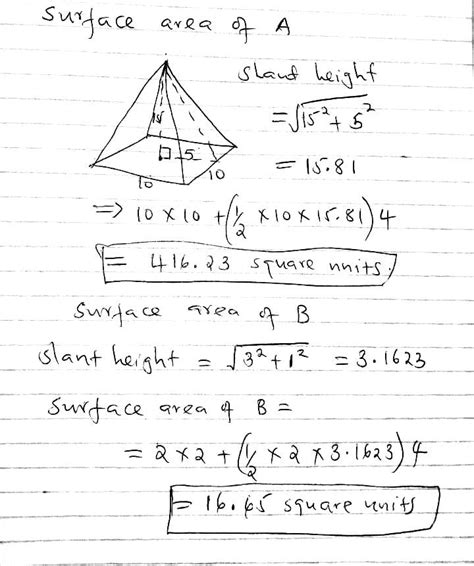 Surface area of A
Slant height
= √15² + 5²
= 15.81
15
5
10
10
⇒ 10 × 10 + (1/2 × 10 × 15.81) 4
= 416.23 square units.
Surface area of B
Slant height = √3² + 1² = 3.1623
Surface area of B =
= 2 × 2 + (1/2 × 2 × 3.1623) 4
= 16.65 square units